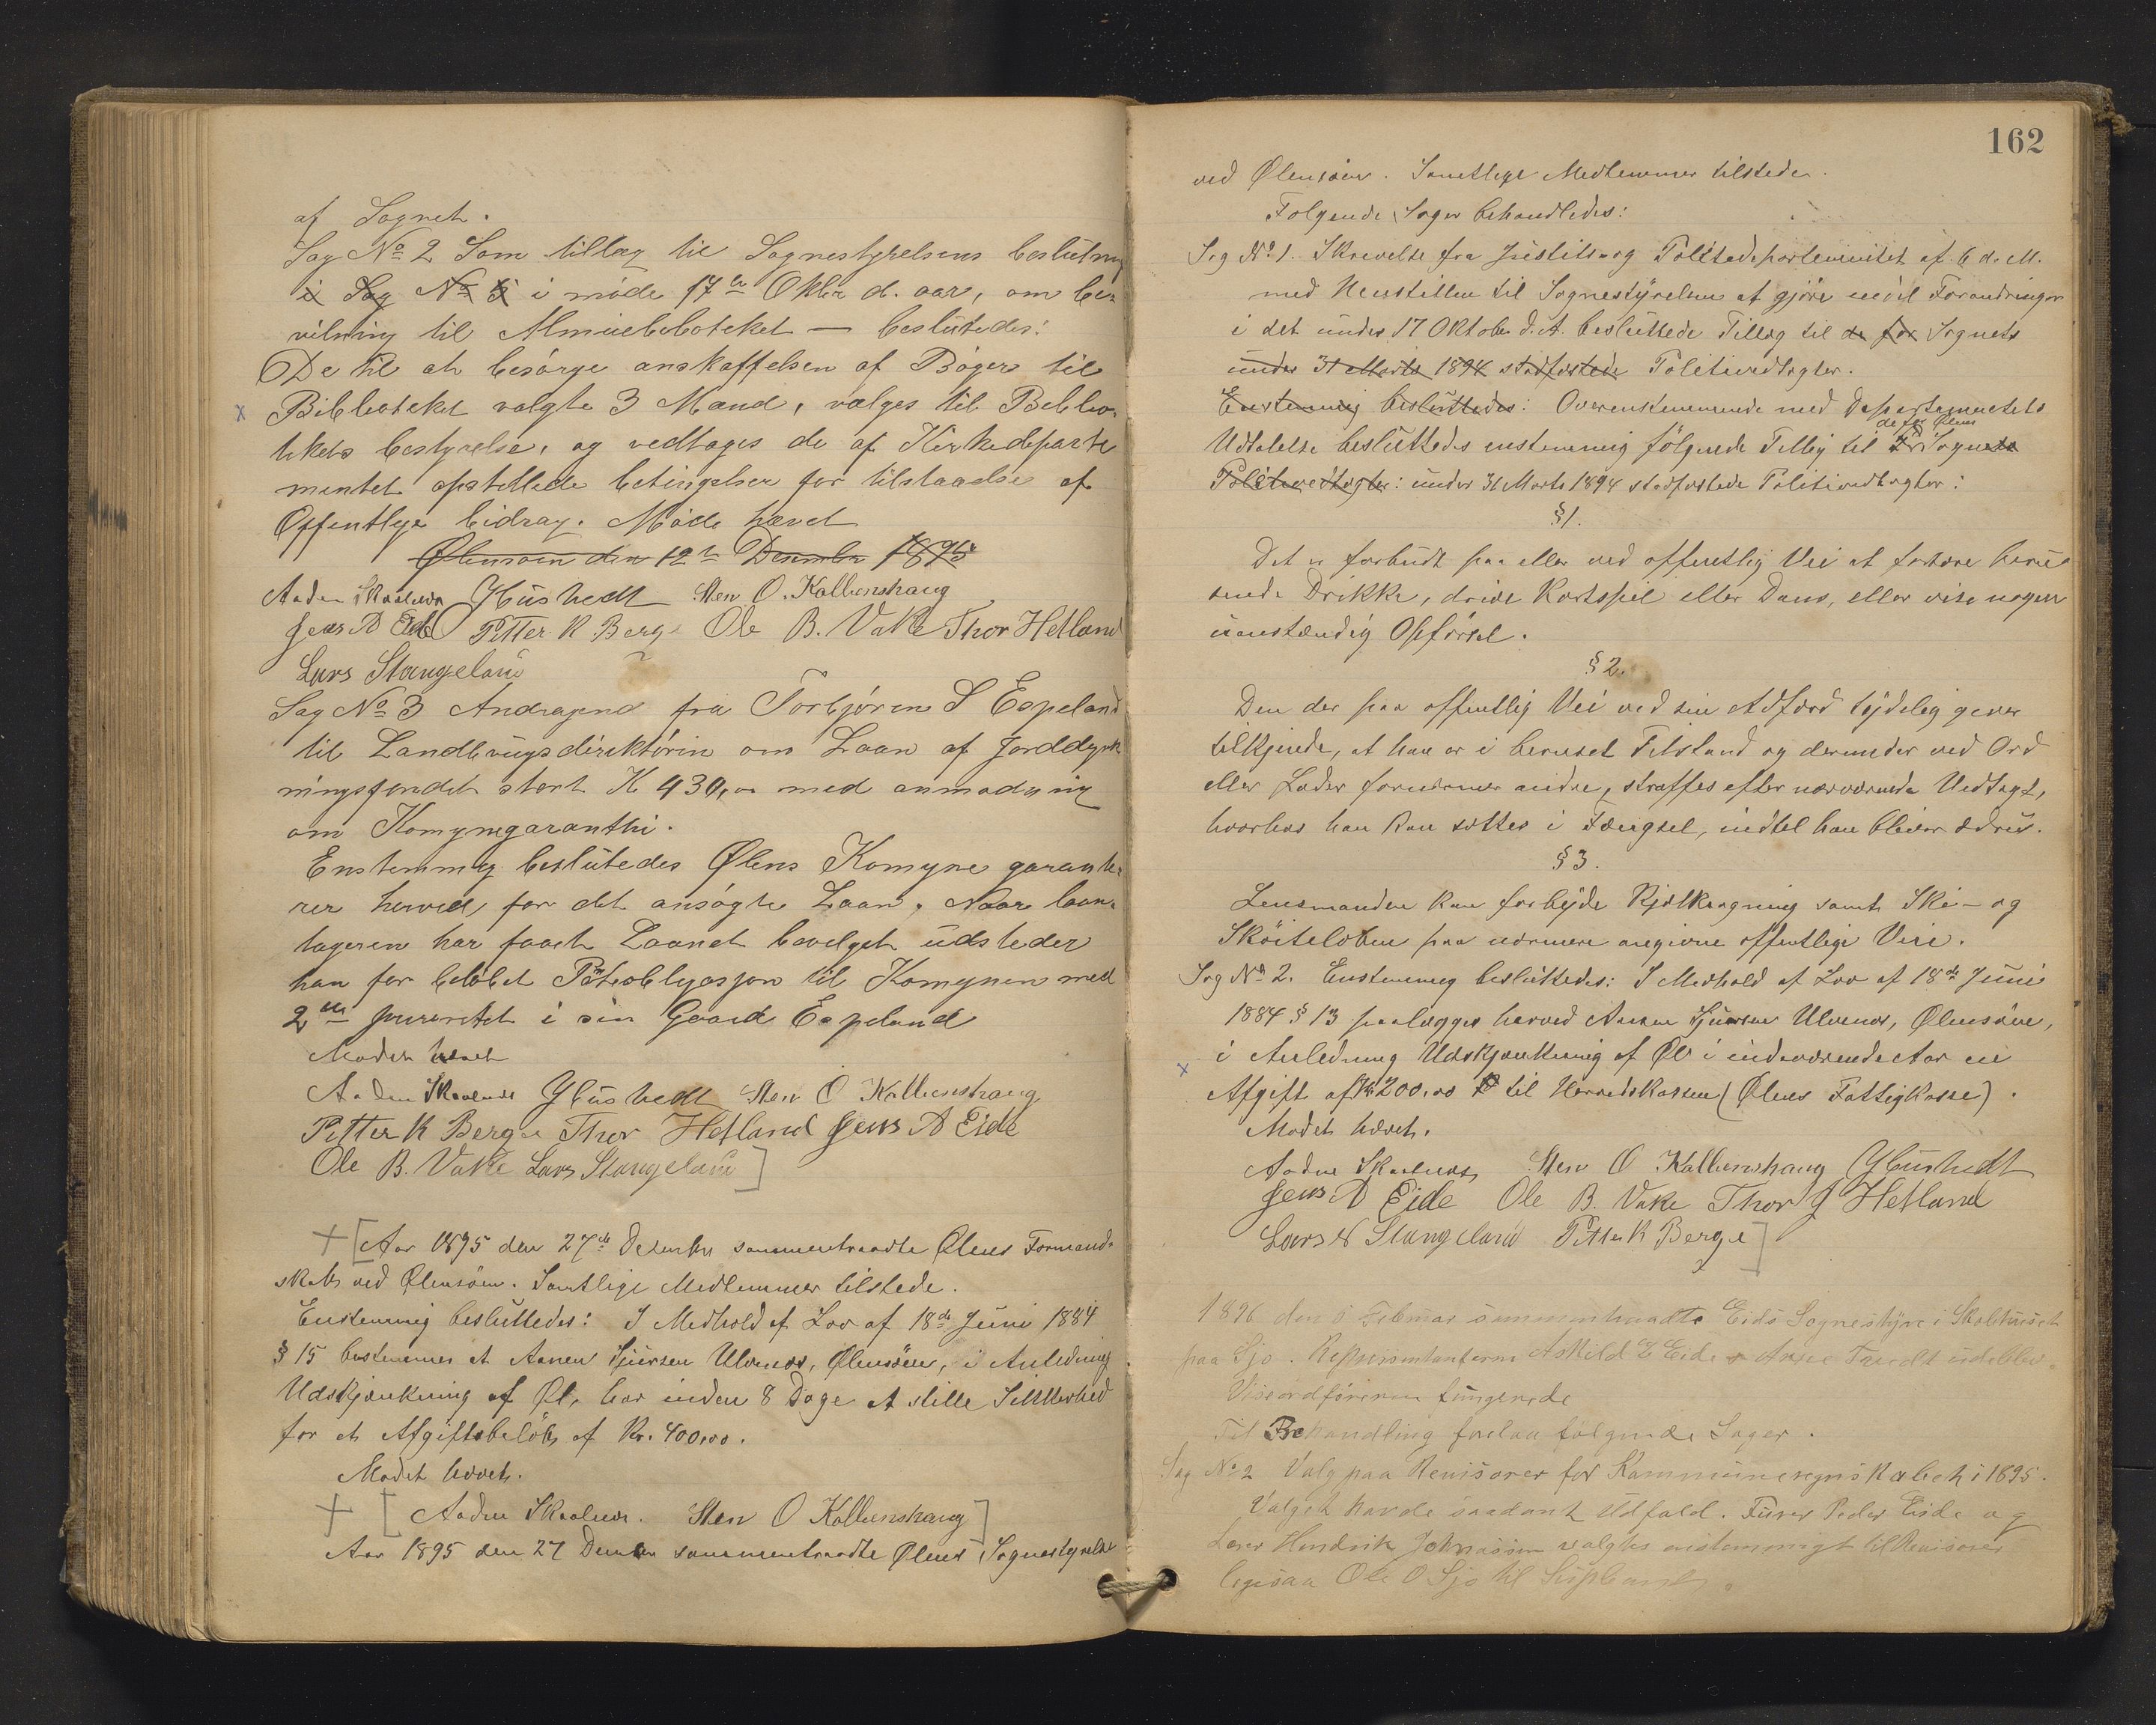 af Sognet.
Sag No 2 Som tillæg til Sognestyrelsens beslutning
i Sag No 5 i møde 17de Oktbr d. aar, om be-
vilning til Almuebiboteket — beslutedes:
De til at besørge anskaffelsen af Bøger til
Biblioteket valgte 3 Mænd, vælges til Biblio-
tekets bestyrelse, og vedtages de af Kirkedeparte
mentet opstellede betingelser for tilstaaelse af
Offentlige bidrag. Møde hævet
Ølensøen den 12te Desember 1895
Aaden Skaalnes Y Güshedt Sten O. Kallbenshaug
Jens A Eide Petter K Berge Ole B. Vake Thor Hetland
Lars Stangeland
Sag No 3 Andragend fra Torbjøren S Espeland
til Landbrugsdirektørin om Laan af Jorddyrk
ningsfondet stort K 430,00 med anmodning
om Komynegaranthi.
Enstemmig beslutedes Ølens Komyne garante-
rer herved, for det ansøgte Laan. Naar laan-
tageren har faaet Laanet bevilget udsteder
han for beløbet Panteoblygasjon til Komynen med
2den prioritet i sin Gaard Espeland
Mødet hævet
Aaden Skaalnes Y Güshedt Sten O Kallbenshaug
Petter K Berge Thor Hetland Jens A Eide
Ole B. Vake Lars Stangeland ]
+ [ Aar 1895 den 27de Desember sammentraadte Ølens Formand-
skab ved Ølensøen. Samtlige Medlemmer tilstede.
Enstemmig besluttedes: I Medhold af Lov af 18de Juni 1884
§ 15 bestemmes at Aanen Sjursen Ulvenes, Ølensøen, i Anledning
Udskjænkning af Øl, bør inden 8 Dage at stille Sikkerhed
for et Afgiftsbeløb af Kr. 400,00.
Mødet hævet.
+ [ Aaden Skaalnes. Sten O Kallbenshaug ]
Aar 1895 den 27 Desember sammentraadte Ølens Sognestyrelse
162
ved Ølensøen. Samtlige Medlemmer tilstede.
Følgende Sager behandledes:
Sag No 1. Skrivelse fra Justits og Politidepartementet af 6 d. M.
med Henstillen til Sognestyrelsen at gjøre en del Forandringer
i det under 17 Oktober d. A. besluttede Tillæg til de for Sognets
under 31 Marts 1894 stadfæstede Politivedtægter.
Enstemmig besluttedes: Overensstemmende med Departementets
de for Ølens
Udtalelse besluttedes enstemmig følgende Tillæg til Sognets
Politivedtægter: under 31 Marts 1894 stadfæstede Politivedtægter:
§ 1.
Det er forbudt paa eller ved offentlig Vei at fortære beru-
sende Drikke, drive Kortspil eller Dans, eller vise nogen
uanstændig Opførsel.
§ 2.
Den der paa offentlig Vei ved sin Adfærd tydelig giver
tilkjende, at han er i beruset Tilstand og derunder ved Ord
eller Lader fornærmer andre, straffes efter nærværende Vedtægt,
hvorhos han kan sættes i Fængsel, indtil han bliver ædru.
§ 3.
Lensmanden kan forbyde Kjælkeagning samt Ski- og
Skøiteløben paa nærmere angivne offentlige Veie.
Sag No 2. Enstemmig besluttedes: I Medhold af Lov af 18de Juni
1884 § 13 paalægges herved Aanen Sjursen Ulvenes, Ølensøen,
i Anledning Udskjænkning af Øl i indeværende Aar en
Afgift af Kr 200,00 til Herredskassen (Ølens Fattigkasse).
Mødet hævet.
Aadne Skaalnes Sten O Kallbenshaug Y Güshedt
Jens A Eide Ole B. Vake Thor J Hetland
Lars N Stangeland Petter K Berge ]
1896 den 8 Februar sammentraadte Eids Sognestyre i Skolehuset
paa Sjo. Repræsentanterne Askild E Eide Arne Tandt udeblev.
Viseordføreren fungerede
Til Behandling forelaa følgende Sager.
Sag No 2 Valg paa Revisorer for Kommuneregnskabet i 1895.
Valget havde saadant Udfald. Furer Peder Eide og
Lærer Hendrik Johnassen valgtes enstemmigt til Revisorer
ligesaa Ole O Sjo til Supleant.